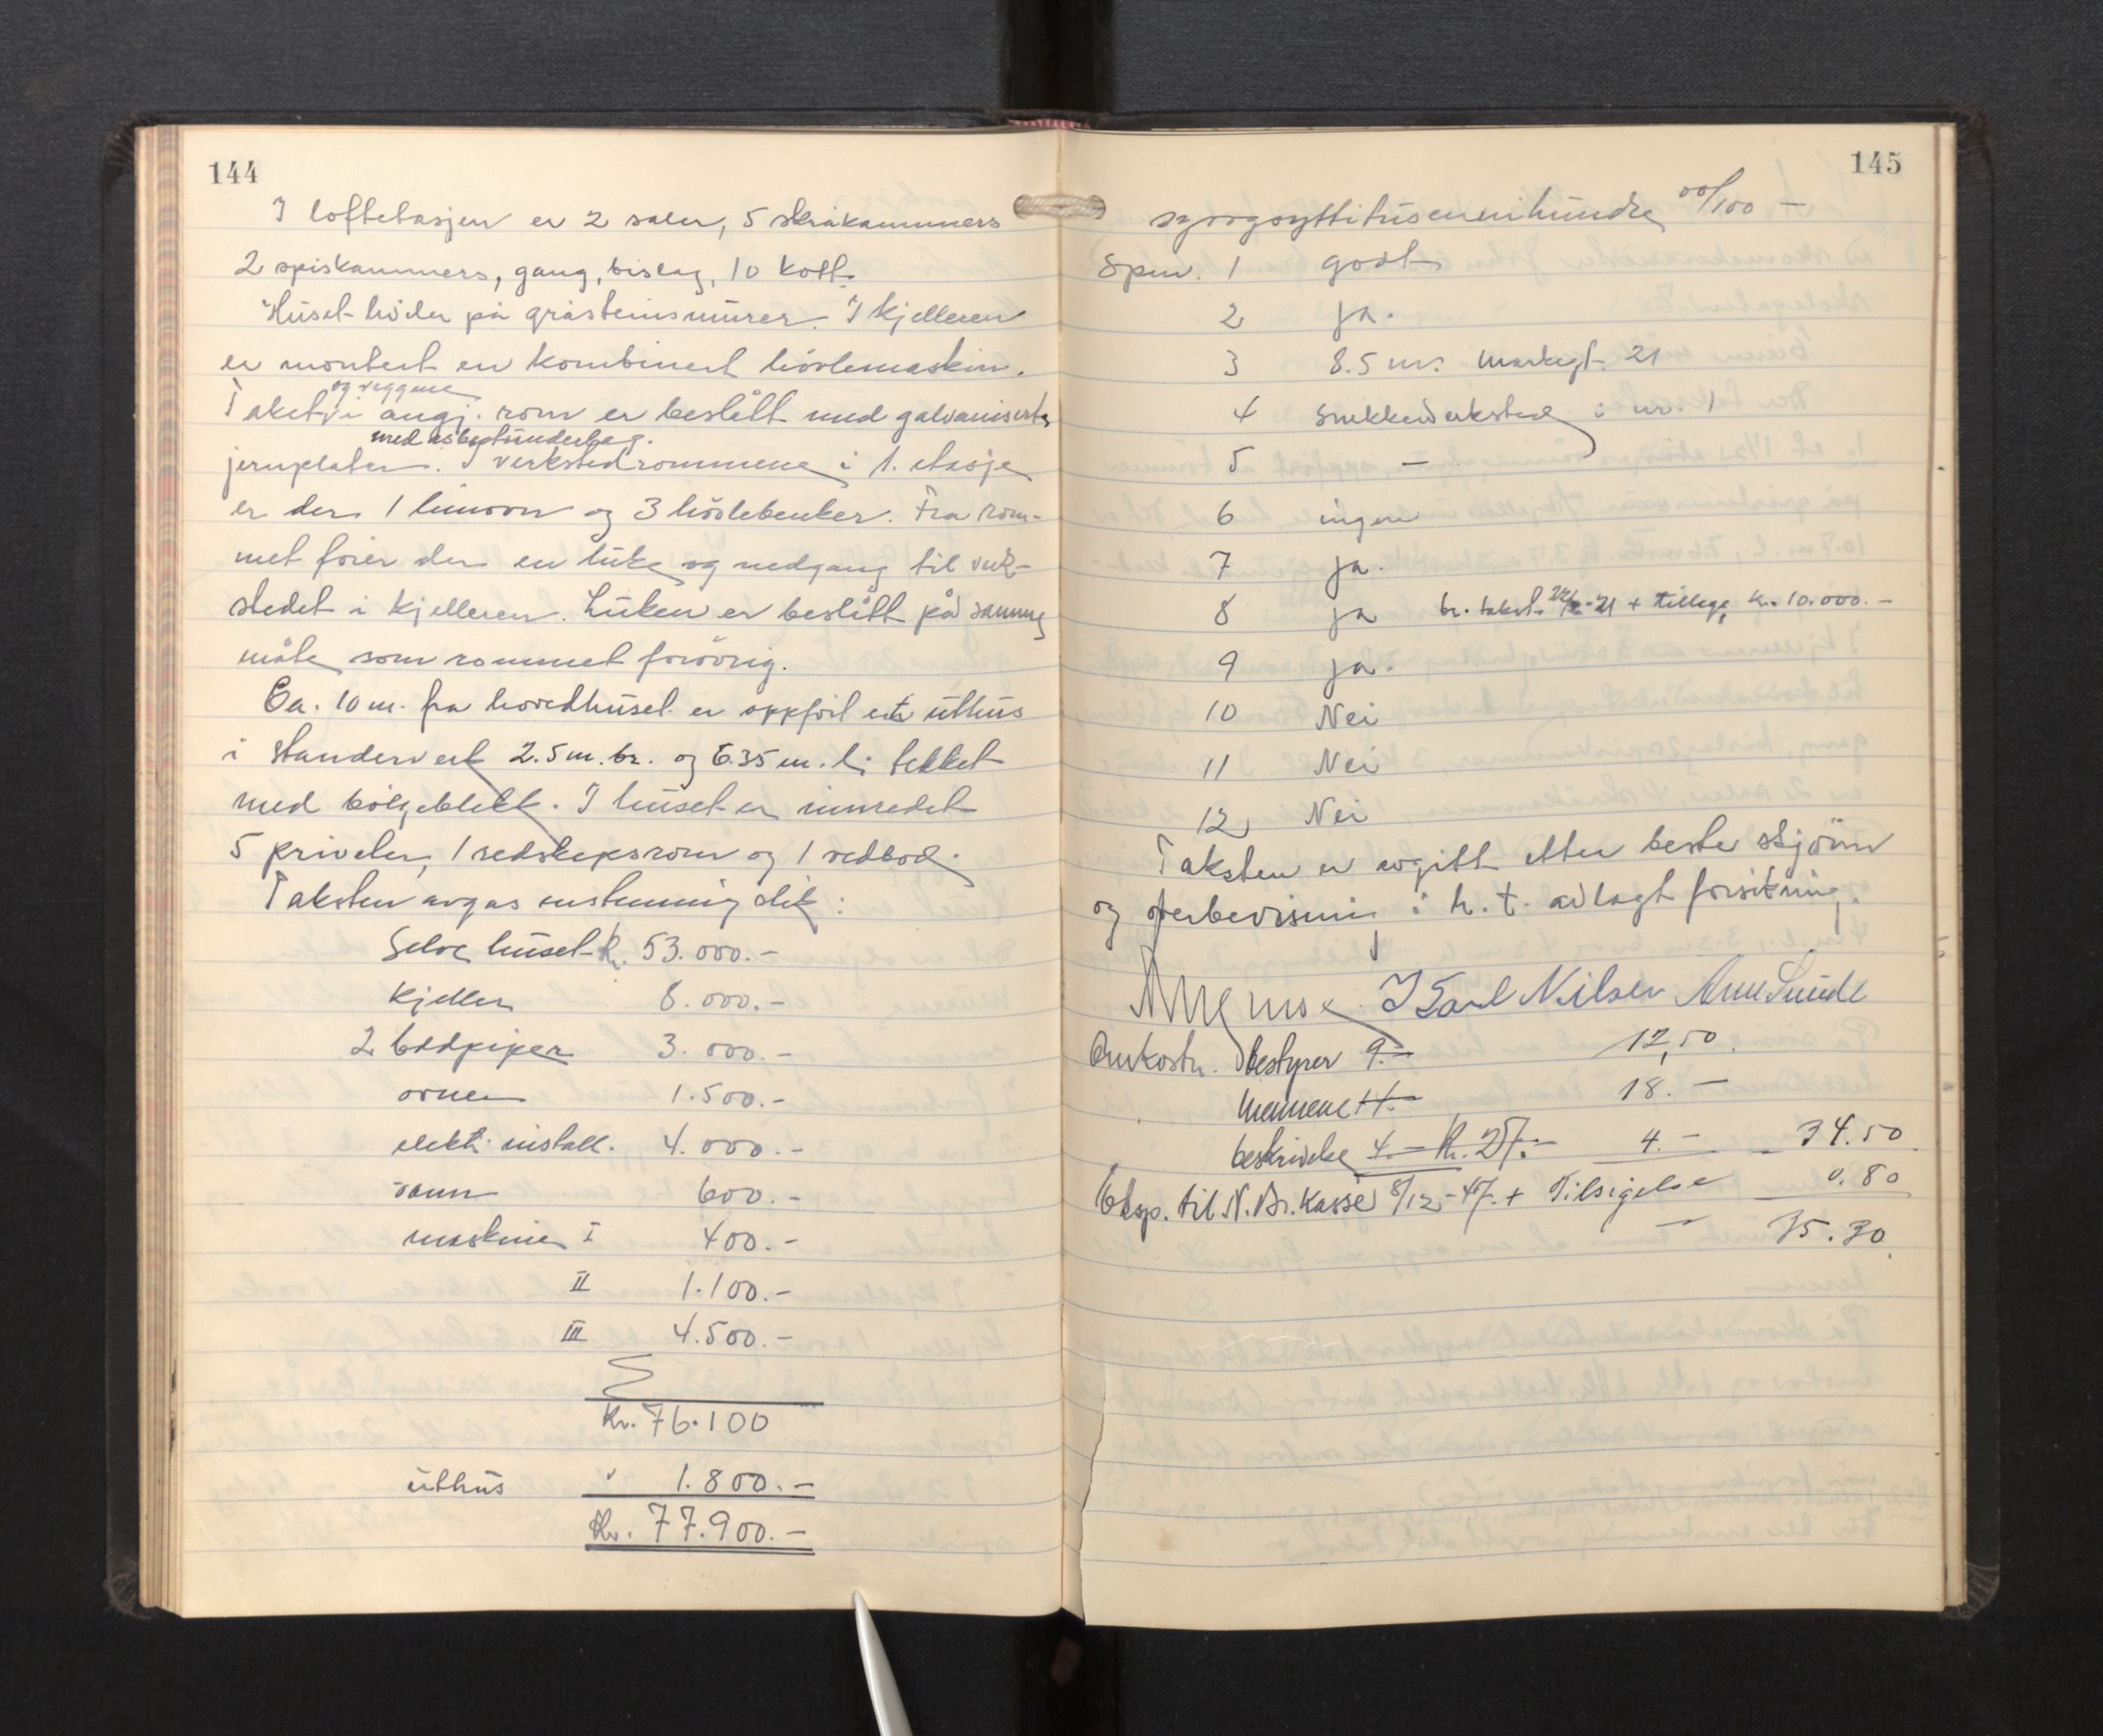 144
I loftetasjen er 2 saler, 5 skråkammers
2 spiskammers, gang, bislag, 10 kott.
Huset hviler på gråsteinsmurer. I kjelleren
er montert en kombinert hövlemaskin.
og veggene
Taket i angj. rom er beslått med galvaniserte
med asbestunderlag.
jernplater. I verkstedrommene i 1. etasje
er der 1 limovn og 3 hövlebenker. Fra rom-
met förer der en luke og nedgang til verk-
stedet i kjelleren. Luken er beslått på samme
måte som rommet forövrig.
Ca. 10 m. fra hovedhuset er oppfört et uthus
i standerverk 2.5 m. br. og 6.35 m. l. tekket
med bölgeblekk. I huset er innredet
5 priveter, 1 redskapsrom og 1 vedbod.
Taksten avgas enstemmig slik:
Selve huset Kr. 53.000.-
Kjeller 8.000.-
2 bædpiper 3.000.-
ovner 1.500.-
elektr. install. 4.000.-
vann 600.-
maskine I 400.-
II 1.100.-
III 4.500.-
Kr. 76.100
uthus " 1.800.-
Kr. 77.900.-
145
syvogsyttitusennihundre 00/100 -
Spm. 1 godt
2 ja.
3 8.5 m. Markegt. 21
4 Snekkerverksted i nr. 1
5 -
6 ingen
7 ja.
8 ja br. takst -21 + tillegg Kr. 10.000.-
9 ja.
10 Nei
11 Nei
12 Nei
Taksten er avgitt etter beste skjönn
og overbevisning i h. t. avlagt forsikring.
J Karl Nilsen Arne Sunde
Omkostn. bestyrer 9.- 12,50
mennene 14.- 18.-
beskrivelse 4.- Kr. 27.- 4.- 34.50
Eksp. til N. Br. Kasse 8/12-47. + Tilsigelse 0.80
- 35.30